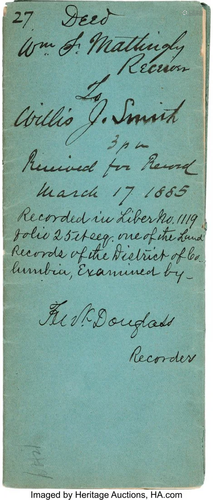 27 Deed
Wm F. Mattingly
Receiver
To
Willis J. Smith
3 pm
Received for Record
March 17 1885
Recorded in Liber No. 1119
folio 25 et seq. one of the Land
Records of the District of Co-
lumbia, Examined by-
Fredk Douglass
Recorder
Imaged by Heritage Auctions, HA.com